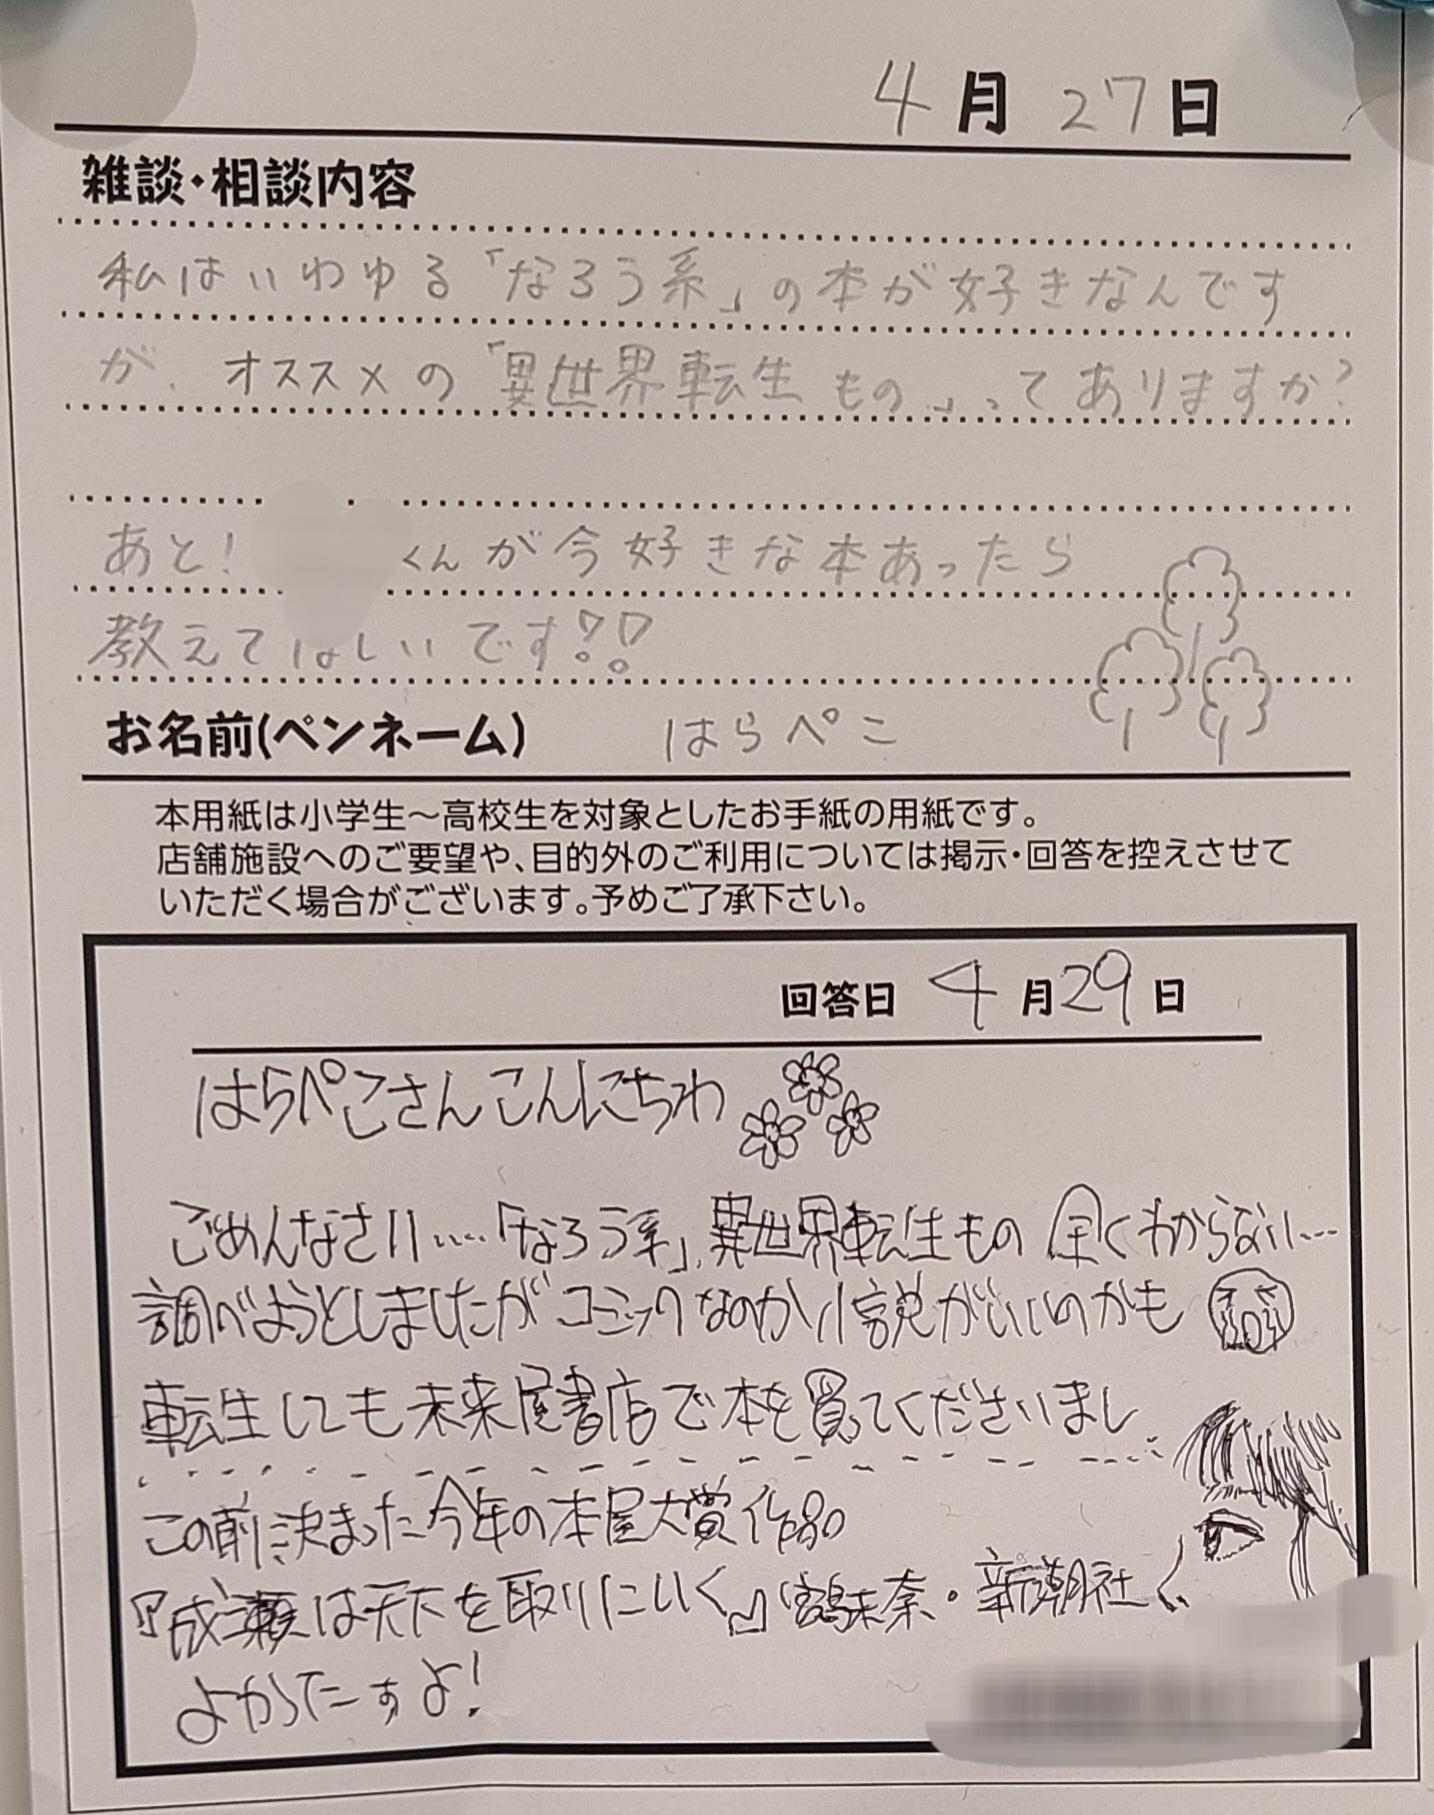 4月27日
雑談・相談内容
私はいわゆる「なろう系」の本が好きなんです
が、オススメの「異世界転生もの」ってありますか?
あと! くんが今好きな本あったら
教えてほしいです!!
お名前(ペンネーム) はらぺこ
本用紙は小学生～高校生を対象としたお手紙の用紙です。
店舗施設へのご要望や、目的外のご利用については掲示・回答を控えさせて
いただく場合がございます。予めご了承下さい。
回答日 4月29日
はらぺこさんこんにちわ
ごめんなさい……「なろう系」、異世界転生もの 全くわからない…
調べようとしましたがコミックなのか小説がいいのかも
転生しても未来屋書店で本を買ってくださいまし
この前決まった今年の本屋大賞作品
『成瀬は天下を取りにいく』 未奈・新潮社
よかったすよ!